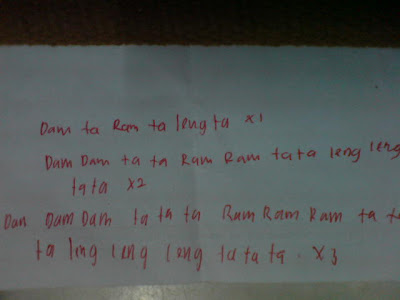 Dam ta Ram ta leng ta x1
Dam Dam ta ta Ram Ram ta ta leng leng
ta ta x2
Dan Dam Dam ta ta ta Ram Ram Ram ta ta
ta ling leng leng ta ta ta. x3